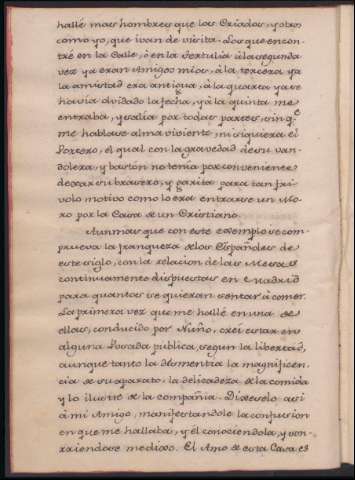 hallé mas hombres que los Criados, y otro
como yo, que ivan de visita. Los que encon-
tré en la Calle, ó en la tertulia á la segunda
vez ya eran Amigos mios, á la tercera ya
la amistad era antigua, á la quarta ya se
havia olvidado la fecha, y á la quinta me
entraba, y salia por todas partes, sin q.e
me hablase alma viviente, ni siquiera el
Portero, el qual con la gravedad de su van-
dolera, y baston no tenia por conveniente
dexar su brasero, y garita para tan fri-
volo motivo como lo era entrarse un Mo-
ro por la Casa de un Christiano.
Aunmas que con este exemplo se com-
prueva la franqueza de los Españoles de
este siglo, con la relacion de las Mesas
continuamente dispuestas en Madrid
para quantos se quieran sentar á comer.
La primera vez que me hallé en una de
ellas, conducido por Nuño, creí estar en
alguna Posada publica, segun la libertad,
aunque tanto la desmentia la magnificen-
cia de su aparato, la delicadeza de la comida
y lo ilustre de la compañia. Dixeselo asi
á mi Amigo, manifestandole la confusion
en que me hallaba; y él conociendola, y son-
rriendose me dixo. El Amo de esta Casa es